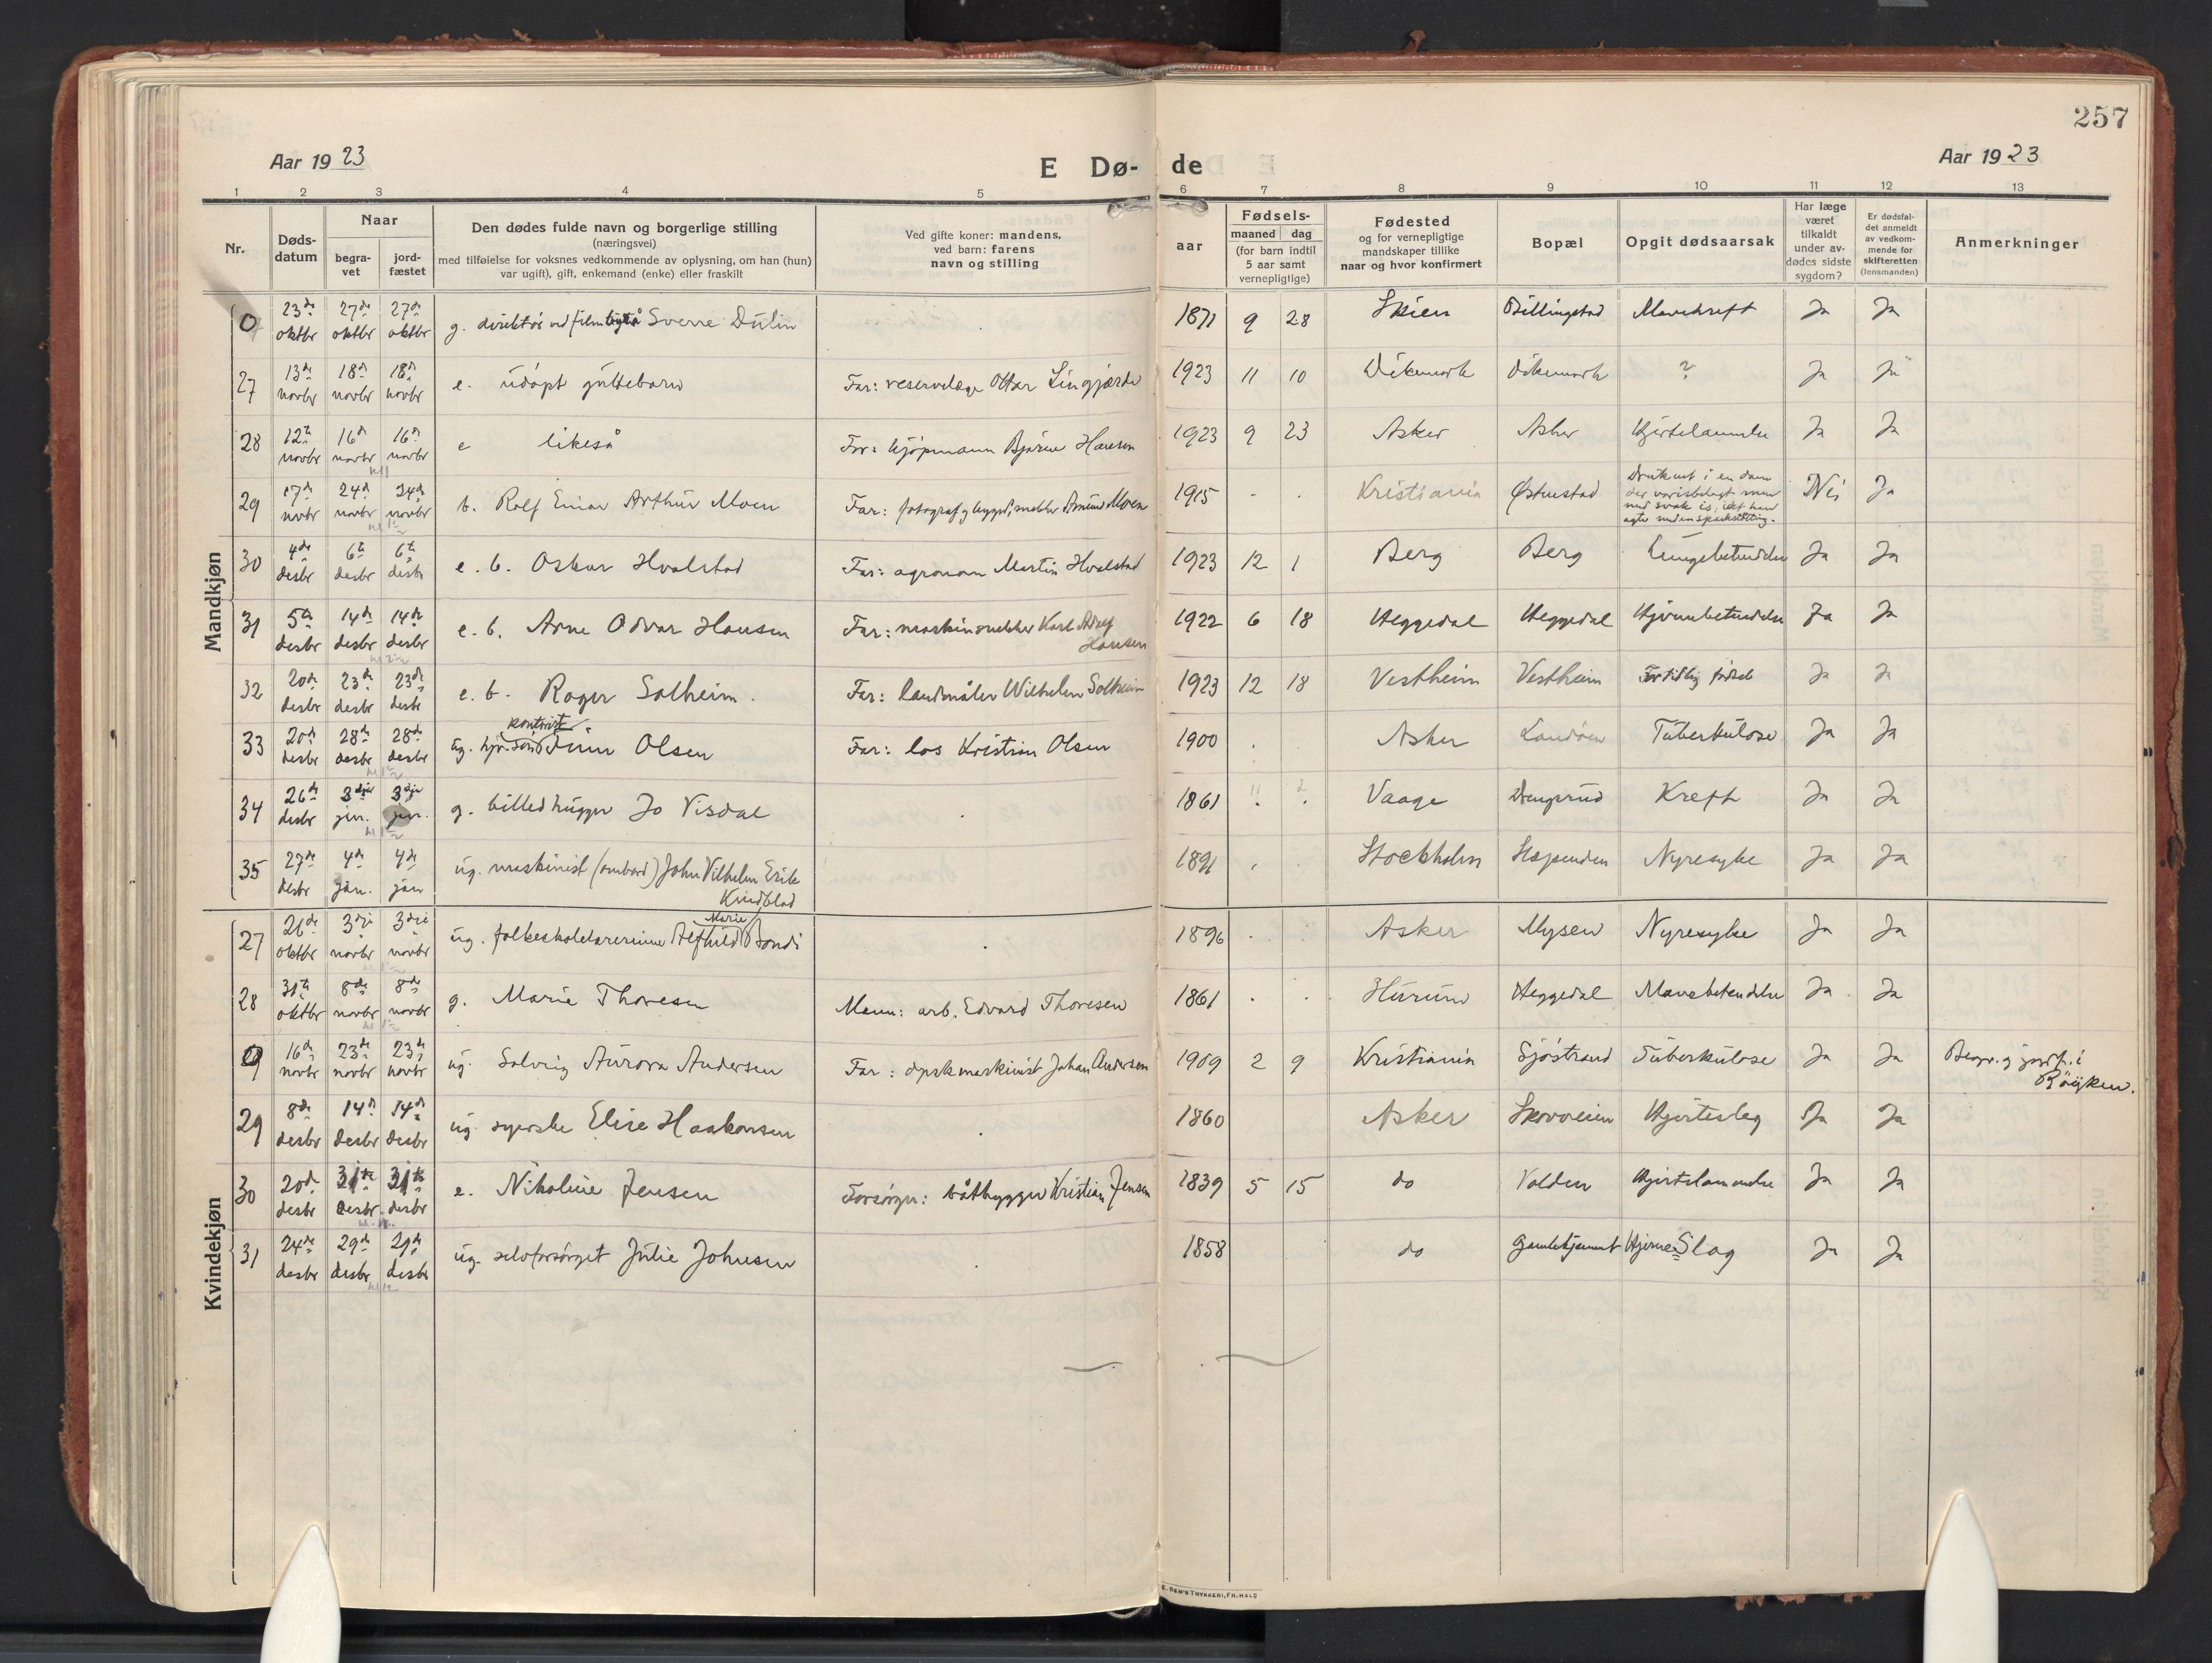 257
Aar 1923
E Dø- de
Aar 1923
1 2 3 4 5 6 7 8 9 10 11 12 13
Nr.
Døds-
datum
Naar
begra-
vet
jord-
fæstet
Den dødes fulde navn og borgerlige stilling
(næringsvei)
med tilføielse for voksnes vedkommende av oplysning, om han (hun)
var ugift), gift, enkemand (enke) eller fraskilt
Ved gifte koner: mandens,
ved barn: farens
navn og stilling
aar
Fødsels-
maaned dag
(for barn indtil
5 aar samt
vernepligtige)
Fødested
og for vernepligtige
mandskaper tillike
naar og hvor konfirmert
Bopæl
Opgit dødsaarsak
Har læge
været
tilkaldt
under av-
dødes sidste
sygdom?
Er dødsfal-
det anmeldt
av vedkom-
mende for
skifteretten
(lensmanden)
Anmerkninger
Mandkjøn
0 23de oktbr 27de oktbr 27de oktbr g. direktør ved film Sverre Dulin 1871 9 28 Skien Billingstad Mavekreft Ja Ja
27 13de novbr 18de novbr 18de novbr e. udøpt guttebarn Far: reservelæge Ottar Lingjærde 1923 11 10 Dikemark Dikemark ? Ja Ja
28 12te novbr 16de novbr 16de novbr e likeså Far: kjøpmann Bjarne Hansen 1923 9 23 Asker Asker Hjertelammelse Ja Ja
29 17de novbr 24de novbr 24de novbr b. Rolf Einar Arthur Moen Far: fotograf og bygds.snekker Amund Moen 1915 . . Kristiania Østenstad Druknet i en dam
med svak is, idet han
Nei Ja
30 4de desbr 6te desbr 6te desbr e. b. Oskar Hvalstad Far: agronom Martin Hvalstad 1923 12 1 Berg Berg Lungebetendelse Ja Ja
31 5te desbr 14de desbr 14de desbr e. b. Arne Odvar Hansen Far: maskinsnekker Karl Adolf
Hansen 1922 6 18 Heggedal Heggedal Hjernebetendelse Ja Ja
32 20de desbr 23de desbr 23de desbr e. b. Roger Solheim. Far: landmåler Wilhelm Solheim 1923 12 18 Vestheim Vestheim For tidlig fødsel Ja Ja
33 20de desbr 28de desbr 28de desbr ug. hjv. søn kontorist Finn Olsen Far: los Kristian Olsen 1900 . Asker Landøen Tuberkulose Ja Ja
34 26de desbr 3dje jan. 3dje jan. g. billedhugger Jo Visdal . 1861 11 2 Vaage Drengsrud Kreft Ja Ja
35 27de desbr 4de jan. 4de jan ug. maskinist (ombord) John Vilhelm Erik
Kindblad 1891 . . Stockholm Høpenden Nyresyke Ja Ja
Kvindekjøn
27 26de oktbr 3dje novbr 3dje novbr ug. folkeskolelærerinne Alfhild Marie Bondi . 1896 . . Asker Mysen Nyresyke Ja Ja
28 31te oktbr 8de novbr 8de novbr g. Marie Thoresen Mann: arb. Edvard Thoresen 1861 . . Hurum Heggedal Mavebetendelse Ja Ja
0 16de novbr 23de novbr 23de novbr ug. Solveig Aurora Andersen Far: dpsk.maskinist Johan Andersen 1909 2 9 Kristiania Sjøstrand Tuberkulose Ja Ja Begr. og jordf. i
Røyken.
29 8de desbr 14de desbr 14de desbr ug. syerske Elise Haakonsen . 1860 Asker Skovveien Hjerteslag Ja Ja
30 20de desbr 31te desbr. 31te desbr e. Nikoline Jensen Forsørger: båtbygger Kristian Jensen 1839 5 15 do Volden Hjertelammelse Ja Ja
31 24de desbr 29de desbr 29de desbr ug. selvforsørget Julie Johnsen . 1858 do Gamlehjemmet Hjerne=Slag Ja Ja
E. SEM'S TRYKKERI, FR.HALD